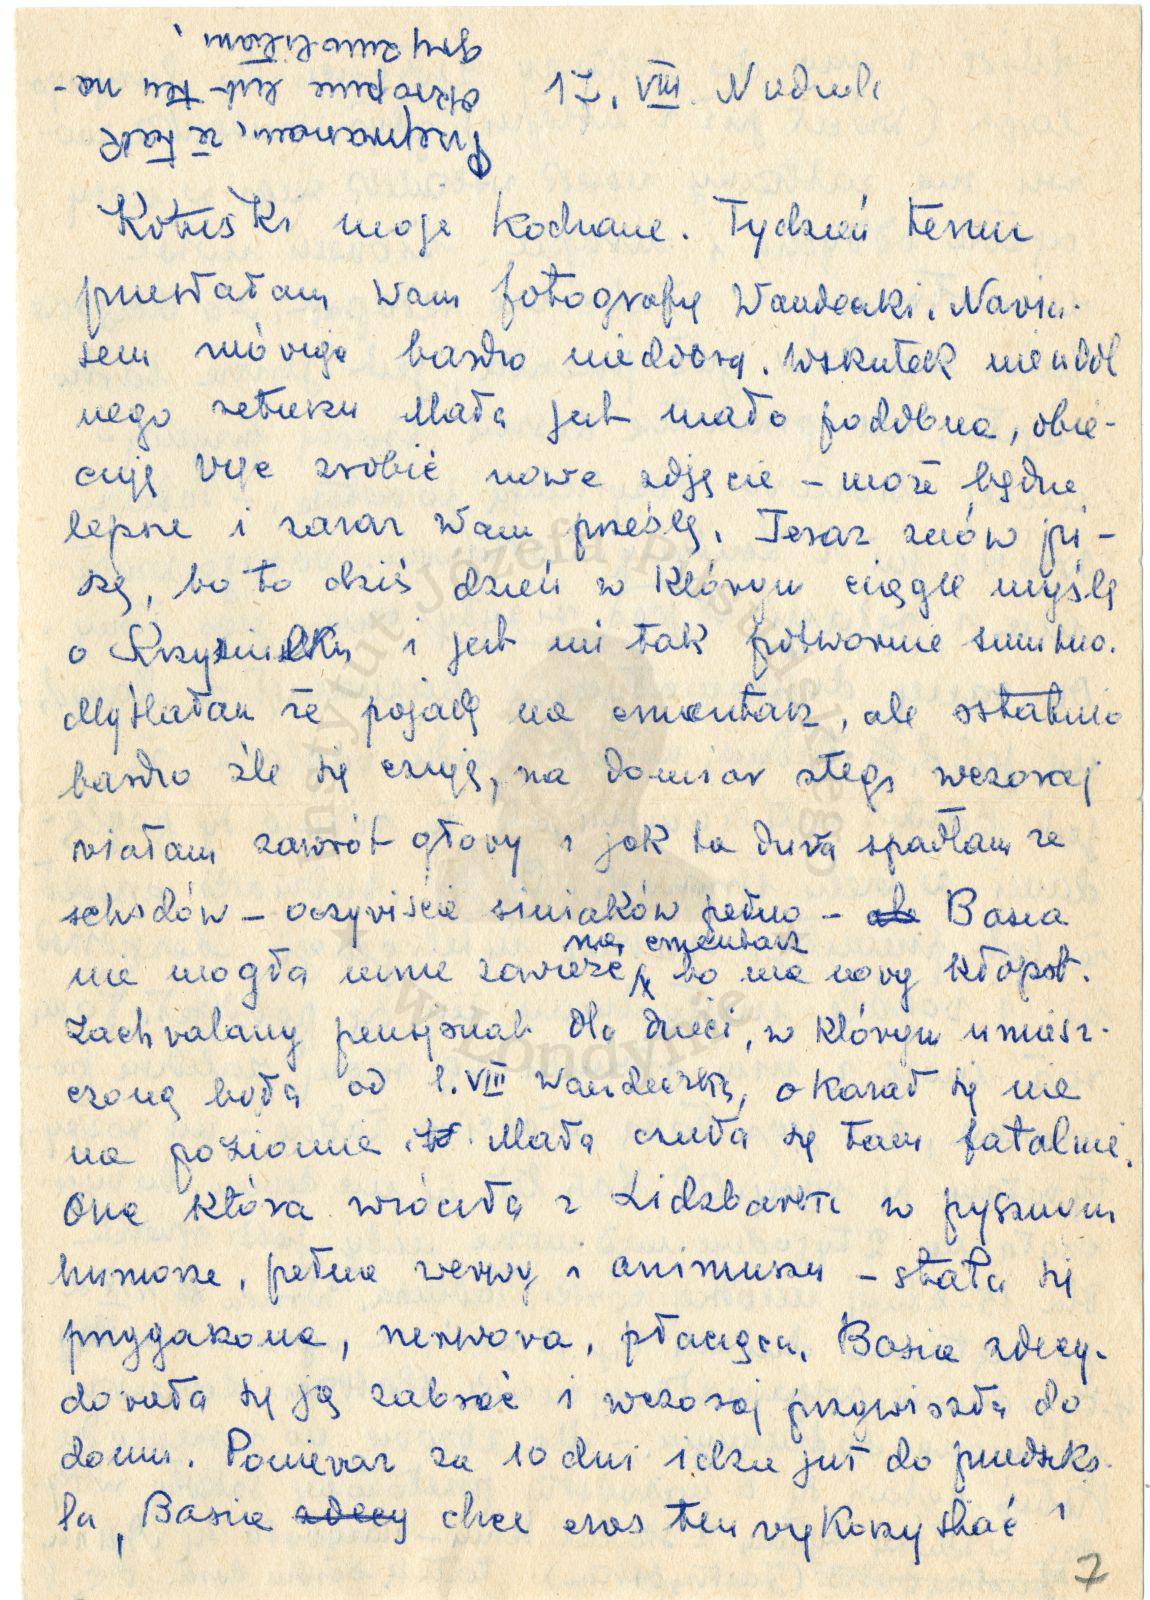 Przepraszam, że tak
okropnie jest ten na-
gryzmolitam,
17. VIII Niedziela
Kotuśki moje kochane. Tydzień temu
przesłałam Wam fotografię Wandeczki. Nawia-
sem mówiąc bardzo niedobrą. Wskutek nieudol
nego retuszu Mała jest mało podobna, obie-
cuję więc zrobić nowe zdjęcie – może będzie
lepsze i zaraz Wam prześlę. Teraz znów pi-
szę, bo to dziś dzień w którym ciągle myślę
o i jest mi tak potwornie smutno.
Myślałam że pojadę na cmentarz, ale ostatnio
bardzo źle się czuję, na domiar złego wczoraj
miałam zawrót głowy i jak ta duża spadłam ze
schodów – oczywiście siniaków pełno – ale Basia
nie mogła mnie zawieźć na cmentarz bo ma nowy kłopot.
Zachwalany pensjonat dla dzieci, w którym umiesz-
czoną była od 1. VIII Wandeczka, okazał się nie
na poziomie. Mała czuła się tam fatalnie.
Ona która wróciła z Lidzbarka w pysznym
humorze, pełna werwy i animuszu – stała się
przygaszona, nerwowa, płacząca. Basia zdecy-
dowała się ją zabrać i wczoraj przywiozła do
domu. Ponieważ za 10 dni idzie już do przedszko-
la, Basia zdecy chce czas ten wykorzystać i
7
Instytut Józefa Piłsudskiego
w Londynie